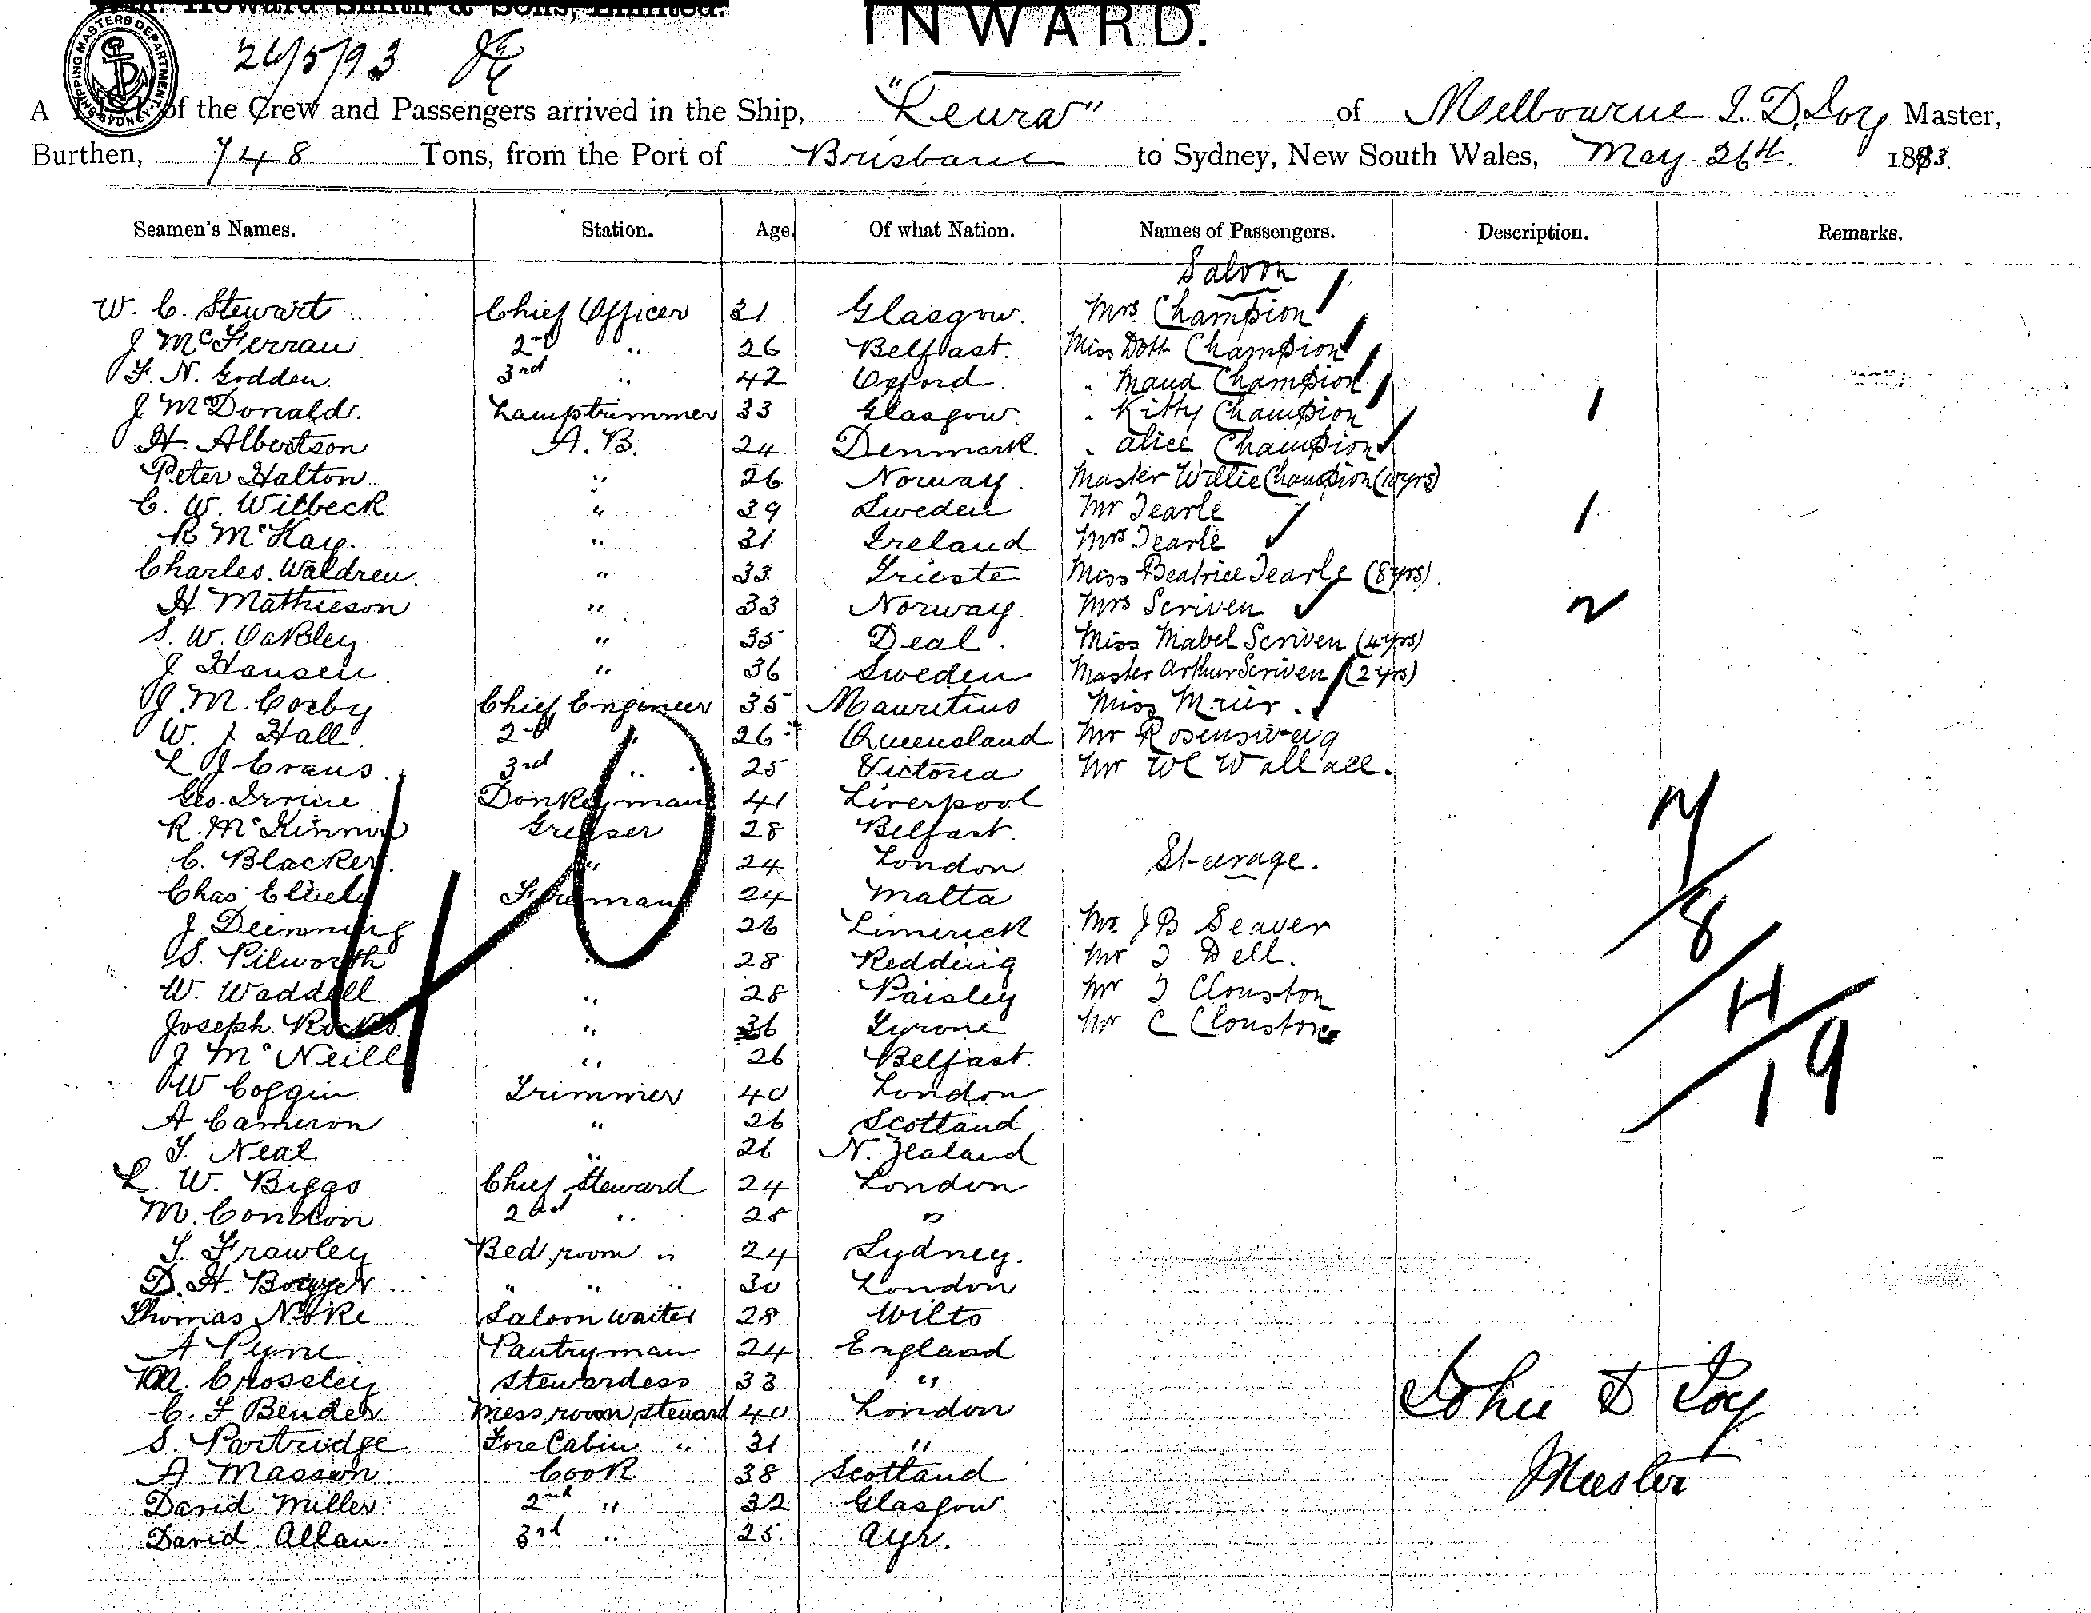 Wm. Howard Smith & Sons, Limited.
INWARD.
26/5/93
SHIPPING MASTERS DEPARTMENT
A of the Crew and Passengers arrived in the Ship, "Leura" of Melbourne J. D. Loy Master,
Burthen, 748 Tons, from the Port of Brisbane to Sydney, New South Wales, May 26th 1893.
Seamen's Names. Station. Age. Of what Nation. Names of Passengers. Description. Remarks.
Saloon
W. C. Stewart Chief Officer 31 Glasgow. Mrs Champion
J McFerran 2nd " 26 Belfast. Miss Dott Champion
F. N. Godden. 3rd " 42 Oxford. " Maud Champion
J McDonald. Lamptrimmer 33 Glasgow. " Kitty Champion 1
H. Albertson A. B. 24 Denmark " Alice Champion
Peter Halton " 26 Norway. Master Willie Champion (10yrs)
C. W. Witbeck " 39 Sweden Mr Tearle 1
R McKay. " 31 Ireland Mrs Tearle
Charles. Waldren. " 33 Trieste Miss Beatrice Tearle (8yrs).
H Mathieson " 33 Norway. Mrs Scriven 2
S. W. Oakley " 35 Deal. Miss Mabel Scriven (4yrs)
J Hansen " 36 Sweden Master Arthur Scriven (2yrs)
J. M. Corby Chief Engineer 35 Mauritius Miss
W. J Hall 2nd " 26 Queensland Mr Rosensweig
L J Craus. 3rd " 25 Victoria Mr WC Wallace.
Geo. Irvine Donkeyman 41 Liverpool
R. McKinnon Greaser 28 Belfast.
C. Blacker. " 24 London Steerage.
Chas Fireman 24 Malta
J 26 Limerick Mr J B Seaver
S. Pilworth " 28 Redding Mr T Dell.
W. Waddell " 28 Paisley Mr T Clouston
Joseph " 36 Tyrone Mr C Clouston
J McNeill " 26 Belfast.
W Coggin Trimmer 40 London
A Cameron " 26 Scotland
T. Neal " 26 N. Zealand
L. W. Biggs Chief Steward 24 London
M. Condon 2nd " 28 "
T. Frawley Bed room " 24 Sydney.
D. H. " " " 30 London
Thomas Noke Saloon Waiter 28 Wilts
A Pyne Pantryman 24 England
M. Crossley Stewardess 33 "
C. F Bender Messroom steward 40 London
S. Partridge Fore Cabin " 31 "
A Masson Cook 38 Scotland
David Miller 2nd " 32 Glasgow
David Allan. 3rd " 25 Ayr.
40
8
11
19
John D Loy
Master